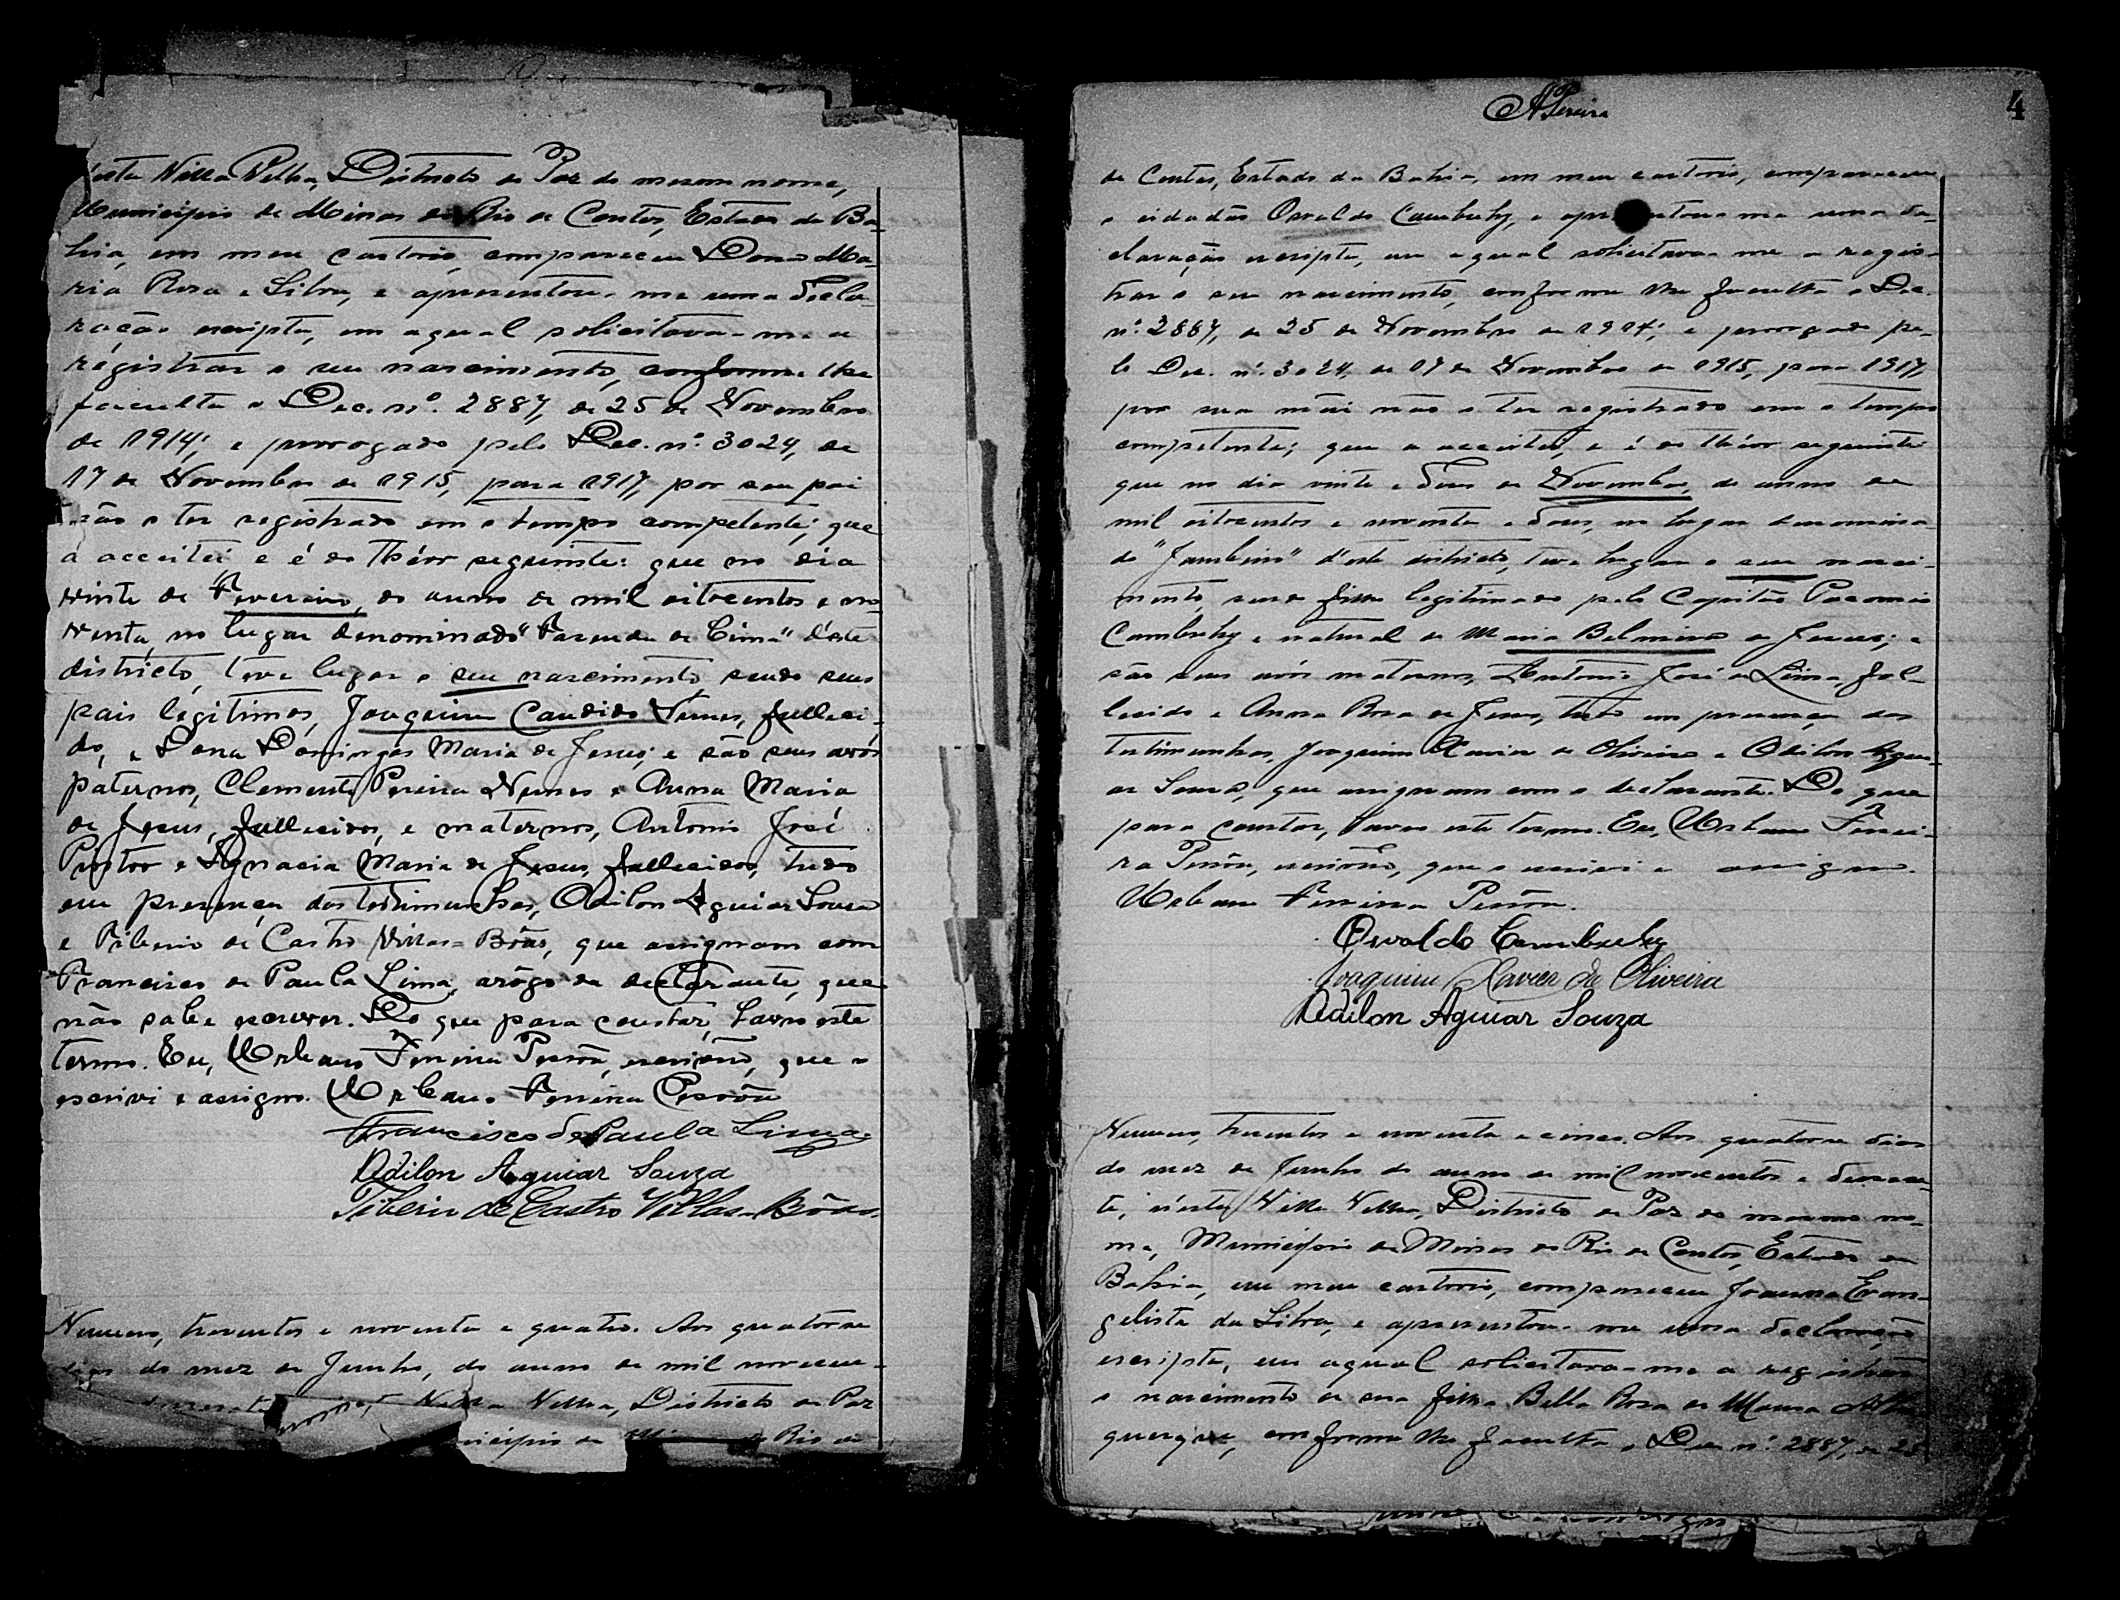 n'esta Villa Velha, Districto de Paz do mesmo nome,
Municipio de Minas do Rio de Contas, Estado da Ba-
hia, em meu cartorio, compareceu Dona Ma-
ria Rosa e Silva, e apresentou-me uma decla-
ração escripta, em a qual solicitava-me a
registrar o seu nascimento, conforme lhe
faculta o Dec. nº. 2887, de 25 de Novembro
de 1914; e prorogado pelo Dec. nº. 3024, de
17 de Novembro de 1915, para 1917, por seu pai
não o ter registrado em o tempo competente; que
a acceitei, e é do thêor seguinte: que no dia
vinte de Fevereiro, do anno de mil oitocentos e no-
venta, no lugar denominado "Fazenda de Cima" d'este
districto, teve lugar o seu nascimento sendo seus
pais legitimos, Joaquim Candido Nunes, falleci-
do, e Dona Domingas Maria de Jesus; e são seus avós
paternos, Clemente Pereira Nunes e Anna Maria
de Jesus, fallecidos, e maternos, Antonio José
Pastôr e Ignacia Maria de Jesus, fallecidos, tudo
em presença das testimunhas, Odilon Aguiar Souza
e Tiberio de Castro Villas-Bôas, que assignam com
Francisco de Paula Lima, arôgo da declarante, que
não sabe escrever. Do que para constar, lavro este
termo. Eu, Urbano Ferreira Pessôa, escrivão, que o
escrivi e assigno. Urbano Ferreira Pessôa
Francisco de Paula Lima
Odilon Aguiar Souza
Tiberio de Castro Villas-Bôas.
Numero, trezentos e noventa e quatro. Aos quatorze
dias do mez de Junho, do anno de mil novecen-
Villa Velha, Districto de Paz
Municipio de Rio de
4
de Contas, Estado da Bahia, em meu cartorio, compareceu
o cidadão Osvaldo Cambuhy, e apresentou-me uma de-
claração escripta, em a qual solicitava-me a regis-
trar o seu nascimento, conforme lhe faculta o Dec.
nº. 2887, de 25 de Novembro de 1914; e prorogado pe-
lo Dec. nº. 3024, de 17 de Novembro de 1915, para 1917,
por sua mãi não o ter registrado em o tempo
competente; que a acceitei, e é do thêor seguinte
que no dia vinte e dous de Novembro, do anno de
mil oitocentos e noventa e dous, no lugar denomina-
do "Jambeiro" d'este districto, teve lugar o seu nasci-
mento, sendo filho legitimado pelo Capitão
Cambuhy e natural de Maria Belmira de Jesus; e
são seus avós maternos, Antonio José de Lima, fal-
lecido e Anna Rosa de Jesus, tudo em presença das
testimunhas, Joaquim Xavier de Oliveira e Odilon Agui-
ar Souza, que assignam com o declarante. Do que
para constar, lavro este termo. Eu, Urbano Ferrei-
ra Pessôa, escrivão, que o escrivi e assigno.
Urbano Ferreira Pessôa.
Osvaldo Cambuhy
Joaquim Xavier de Oliveira
Odilon Aguiar Souza
Numero, trezentos e noventa e cinco. Aos quatorze dias
do mez de Junho do anno de mil novecentos e dezese-
te, n'esta Villa Velha, Districto de Paz do mesmo no-
me, Municipio de Minas do Rio de Contas, Estado da
Bahia, em meu cartorio, compareceu Joanna Evan-
gelista da Silva, e apresentou-me uma declaração
escripta, em a qual solicitava-me a registrar
o nascimento de sua filha Bella Rosa de Moura Albu-
querque, conforme lhe faculta o Dec. nº. 2887, de 25